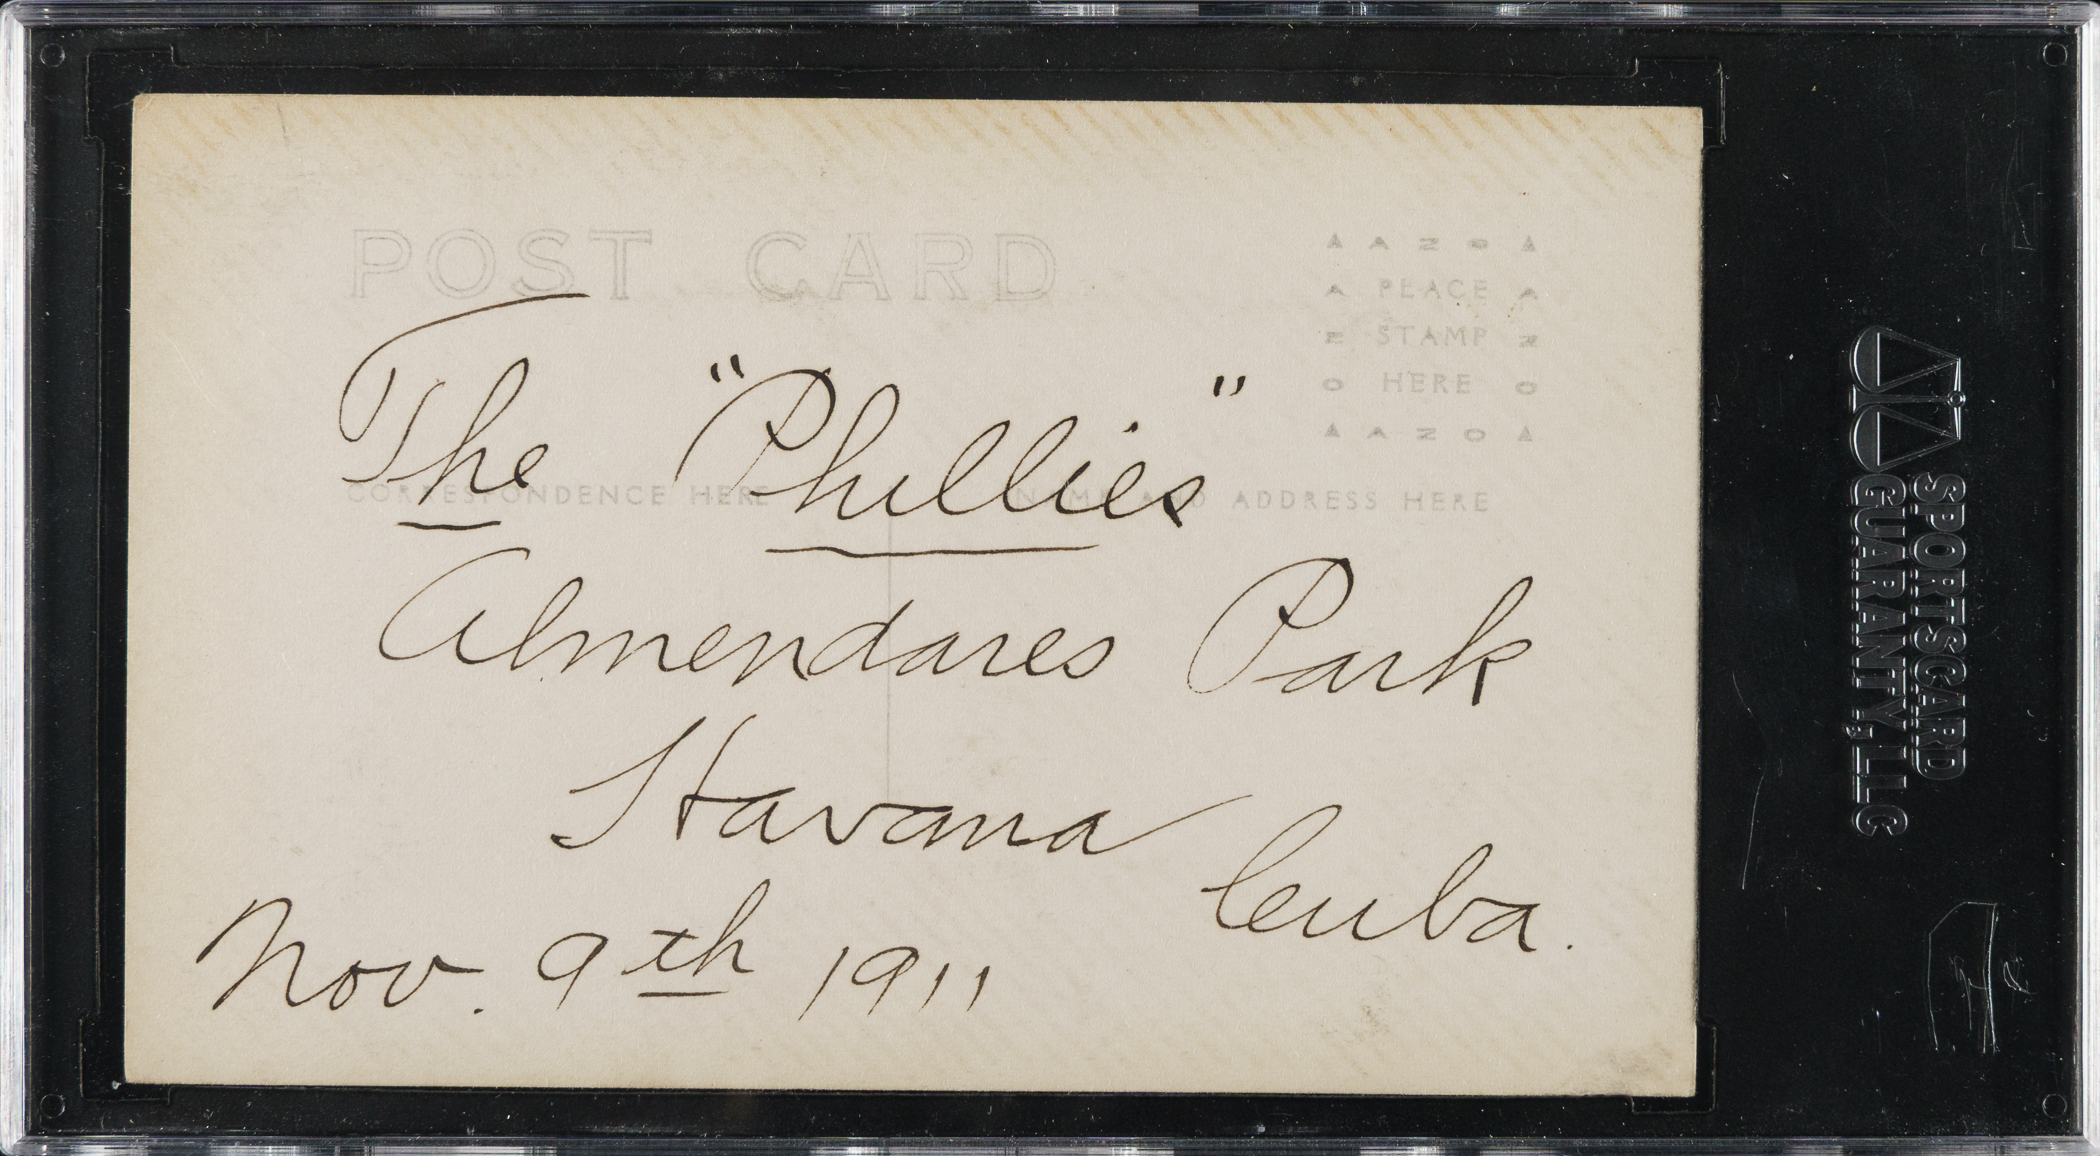 POST CARD
AZOA
PLACE
STAMP
HERE
AZOA
CORRESPONDENCE HERE
NAME AND ADDRESS HERE
The "Phillies"
Almendares Park
Havana Cuba.
Nov. 9th 1911
SGC
SPORTSCARD
GUARANTY, LLC